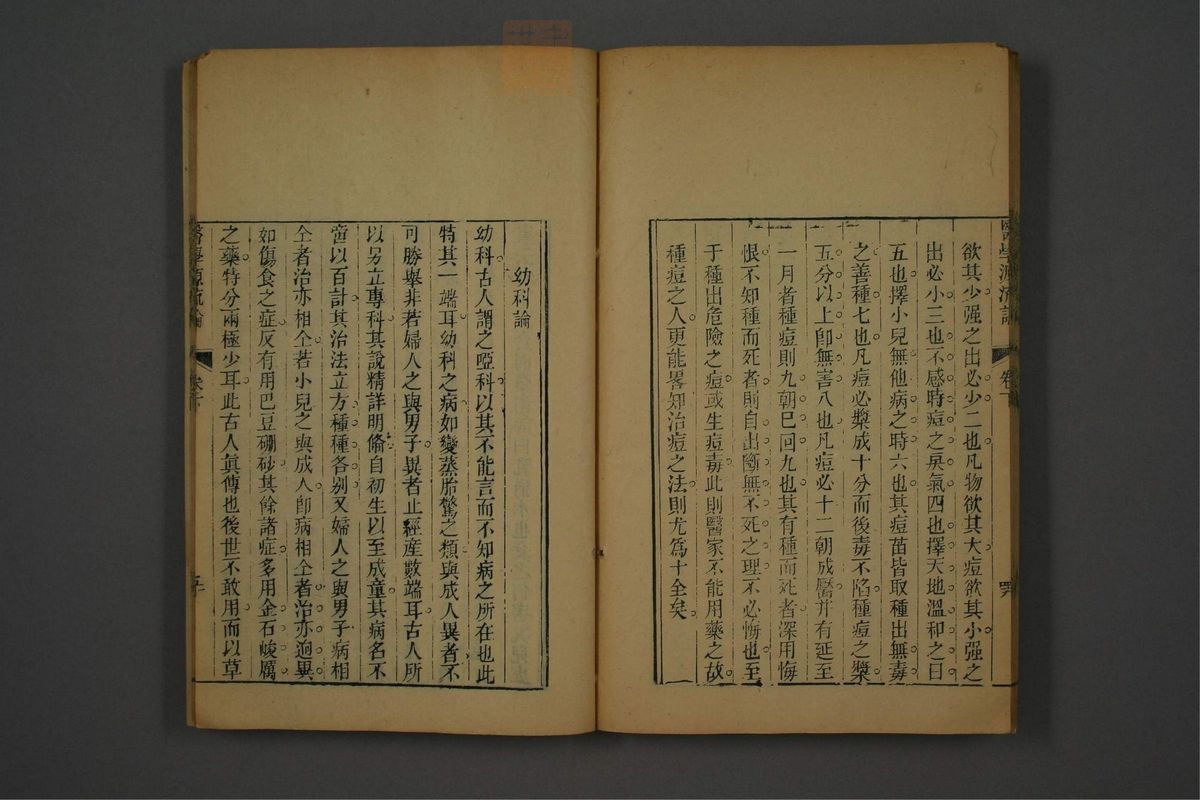 醫學源流論 卷下
欲其少强之出必少二也凡物欲其大痘欲其小强之
出必小三也不感時痘之戾氣四也擇天地溫和之日
五也擇小兒無他病之時六也其痘苗皆取種出無毒
之善種七也凡痘必漿成十分而後毒不陷種痘之漿
五分以上卽無害八也凡痘必十二朝成靨并有延至
一月者種痘則九朝已回九也其有種而死者深用悔
恨不知種而死者則自出斷無不死之理不必悔也至
于種出危險之痘或生痘毒此則醫家不能用藥之故
種痘之人更能畧知治痘之法則尤爲十全矣
幼科論
幼科古人謂之啞科以其不能言而不知病之所在也此
特其一端耳幼科之病如變蒸胎驚之類與成人異者不
可勝舉非若婦人之與男子異者止經産數端耳古人所
以另立專科其說精詳明俻自初生以至成童其病名不
啻以百計其治法立方種種各别又婦人之與男子病相
仝者治亦相仝若小兒之與成人卽病相仝者治亦迥異
如傷食之症反有用巴豆硼砂其餘諸症多用金石峻厲
之藥特分兩極少耳此古人眞傳也後世不敢用而以草
醫學源流論 卷下